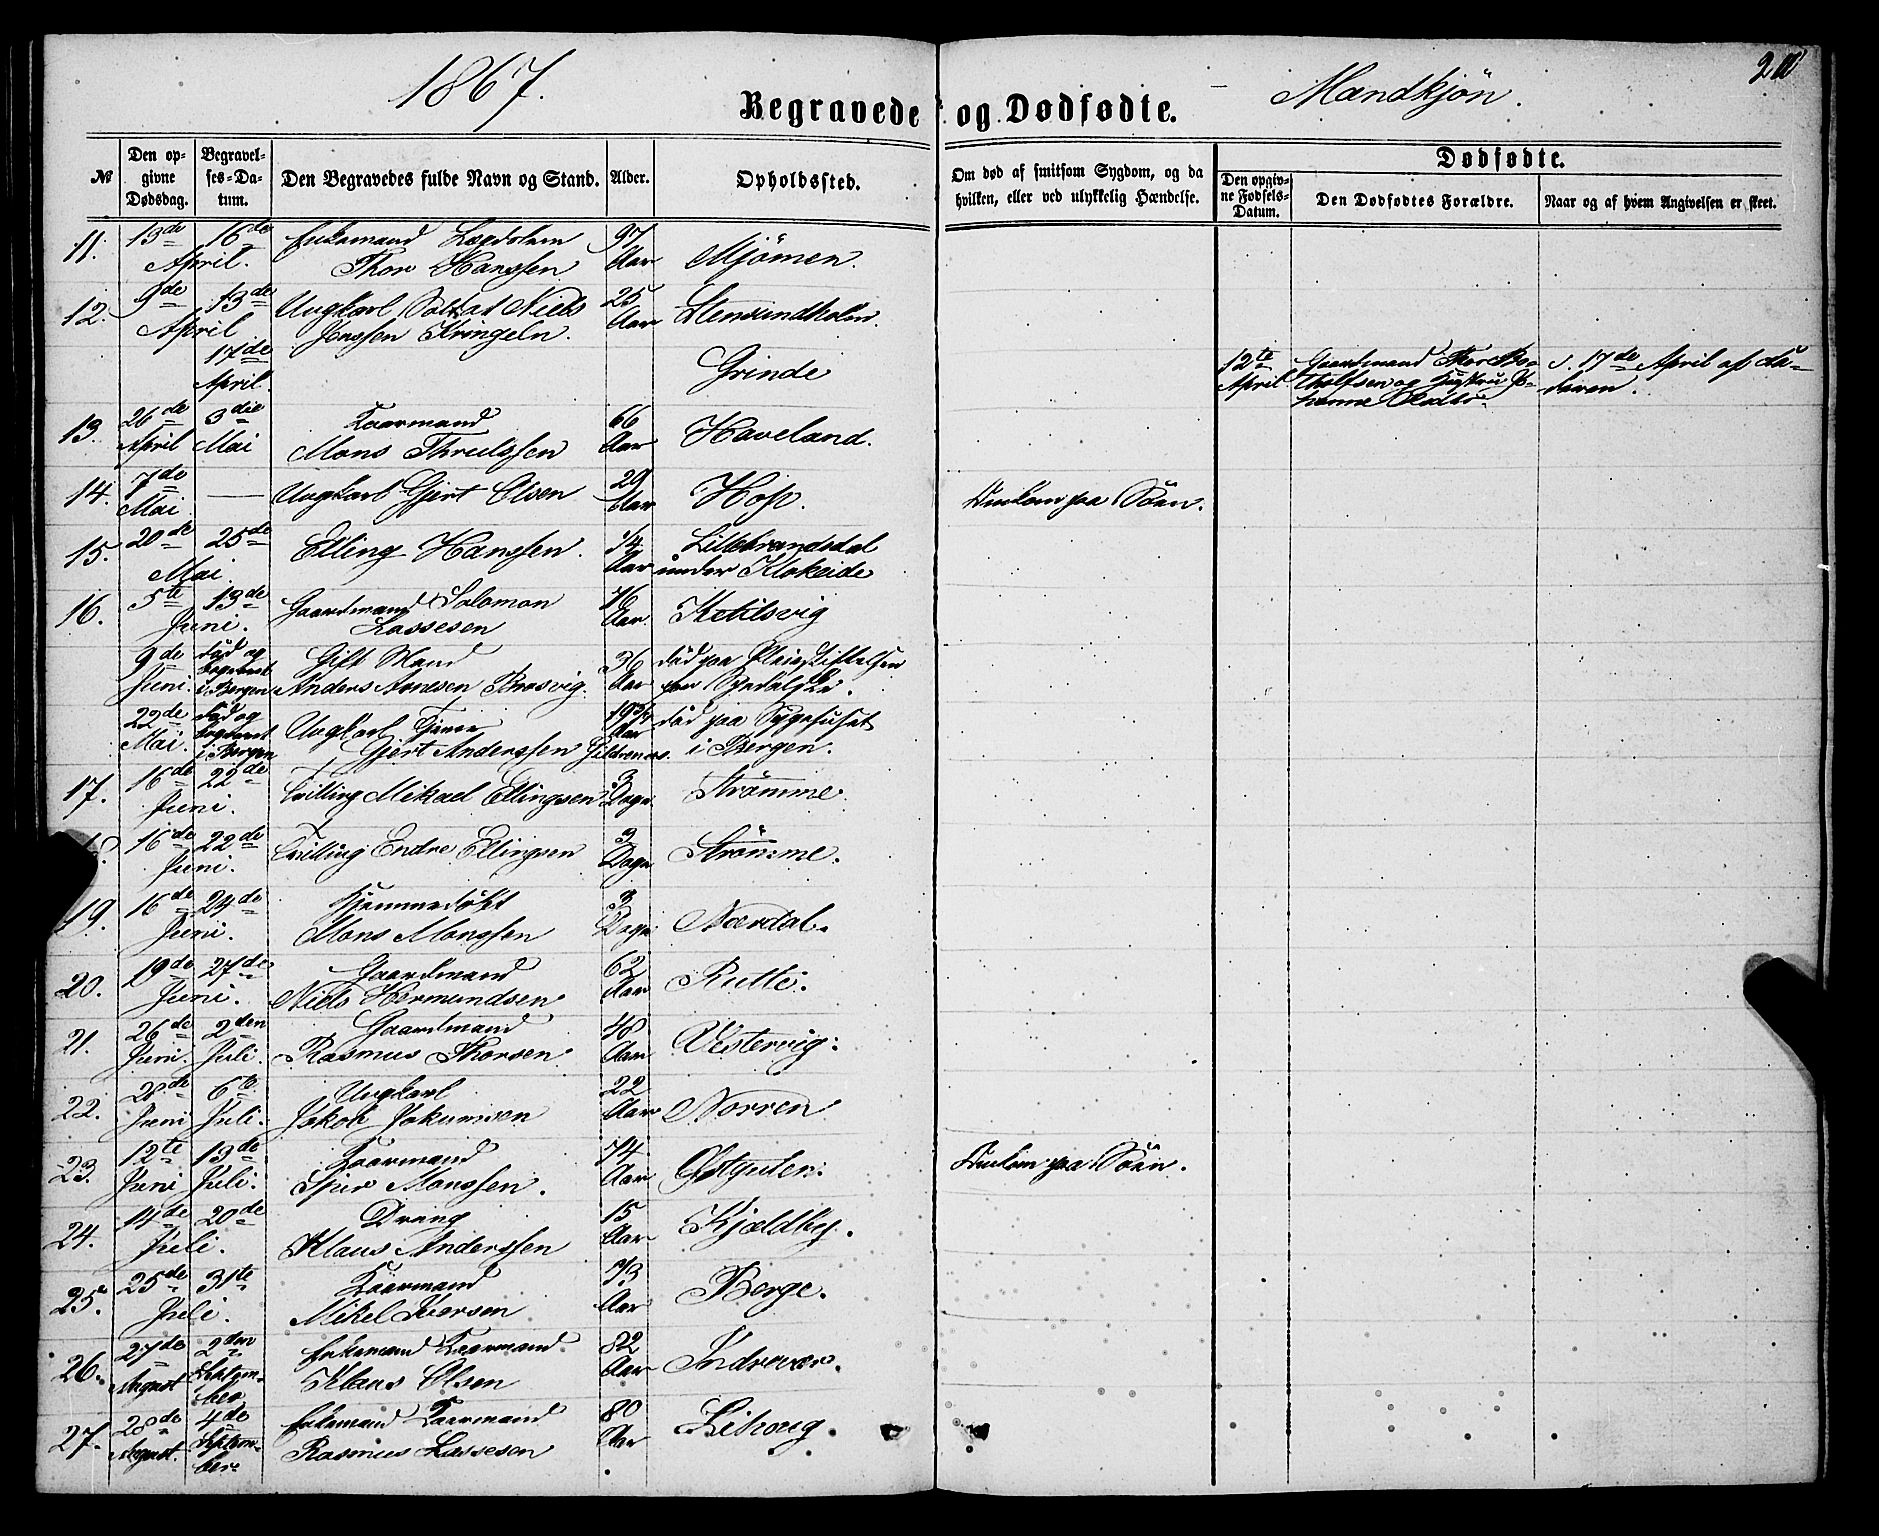 1867.
Begravede og Dødfødte.
Mandkjøn.
No
Den opgivne Dødsdag.
Begravelses-Datum.
Den Begravedes fulde Navn og Stand.
Alder.
Opholdssted.
Om død af smitsom Sygdom, og da hvilken, eller ved ulykkelig Hændelse.
Dødfødte.
Den opgivne Fødsels-Datum.
Den Dødfødtes Forældre.
Naar og af hvem Angivelsen er skeet.
11. 13de 16de April. Enkemand Lægdslem Thor Hanssen 97 Aar Mjømen.
12. 9de 13de April Ungkarl Soldat Niels Jenssen Kringeln. 25 Aar Stensundholm.
17de April. Grinde 12te April Gaardmand Thor og Hustru 17de April af
13. 26de April 3die Mai Kaarmand Mons Thrulssen 66 Aar Haveland.
14. 7de Mai — Ungkarl Gjert Olsen 29 Aar Hop. Omkom paa Søen.
15. 20de 25de Mai. Elling Hanssen. 14 Aar Lillebrandsdal under Klokeide
16. 5te 13de Juni. Gaardmand Solomon Lassesen 76 Aar. Ketilsvig
9de Juni. død og begravet i Bergen Gift Mand Anders Arnesen 36 Aar død paa Pleiestiftelsen for Spedalske.
22de Mai. død og begravet i Bergen Ungkarl Tjener Gjert Anderssen 19 Aar død paa Sygehuset i Bergen.
17. 16de 22de Juni. Tvilling Mikael Ellingsen 3 Dage Strømme.
18. 16de 22de Juni. Tvilling Endre Ellingsen 3 Dage Strømme.
19. 16de 24de Juni. Hjemmedøbt Mons Monssen 3 Dage Nordal.
20. 19de 27de Juni. Gaardmand Niels Hermundsen 62 Aar Rutle.
21. 26de Juni. 2den Juli. Gaardmand Rasmus Thorsen 48 Aar Vestervig.
22. 28de Juni 6te Juli. Ungkarl Jakob Jokumsen 22 Aar Norren
23. 12te Juni 13de Juli. Kaarmand Sjur Monssen. 74 Aar Østgulen. Omkom paa Søen.
24. 14de 20de Juli. Dreng Klaus Anderssen 15 Aar Kjældby.
25. 25de 31te Juli. Kaarmand Mikel Iversen 73 Aar Berge.
26. 27de August 2den September Enkemand Kaarmand Klaus Olsen 82 Aar Indrevær.
27. 28de August. 4de September Enkemand Kaarmand Rasmus Lassesen 80 Aar Lihoug.